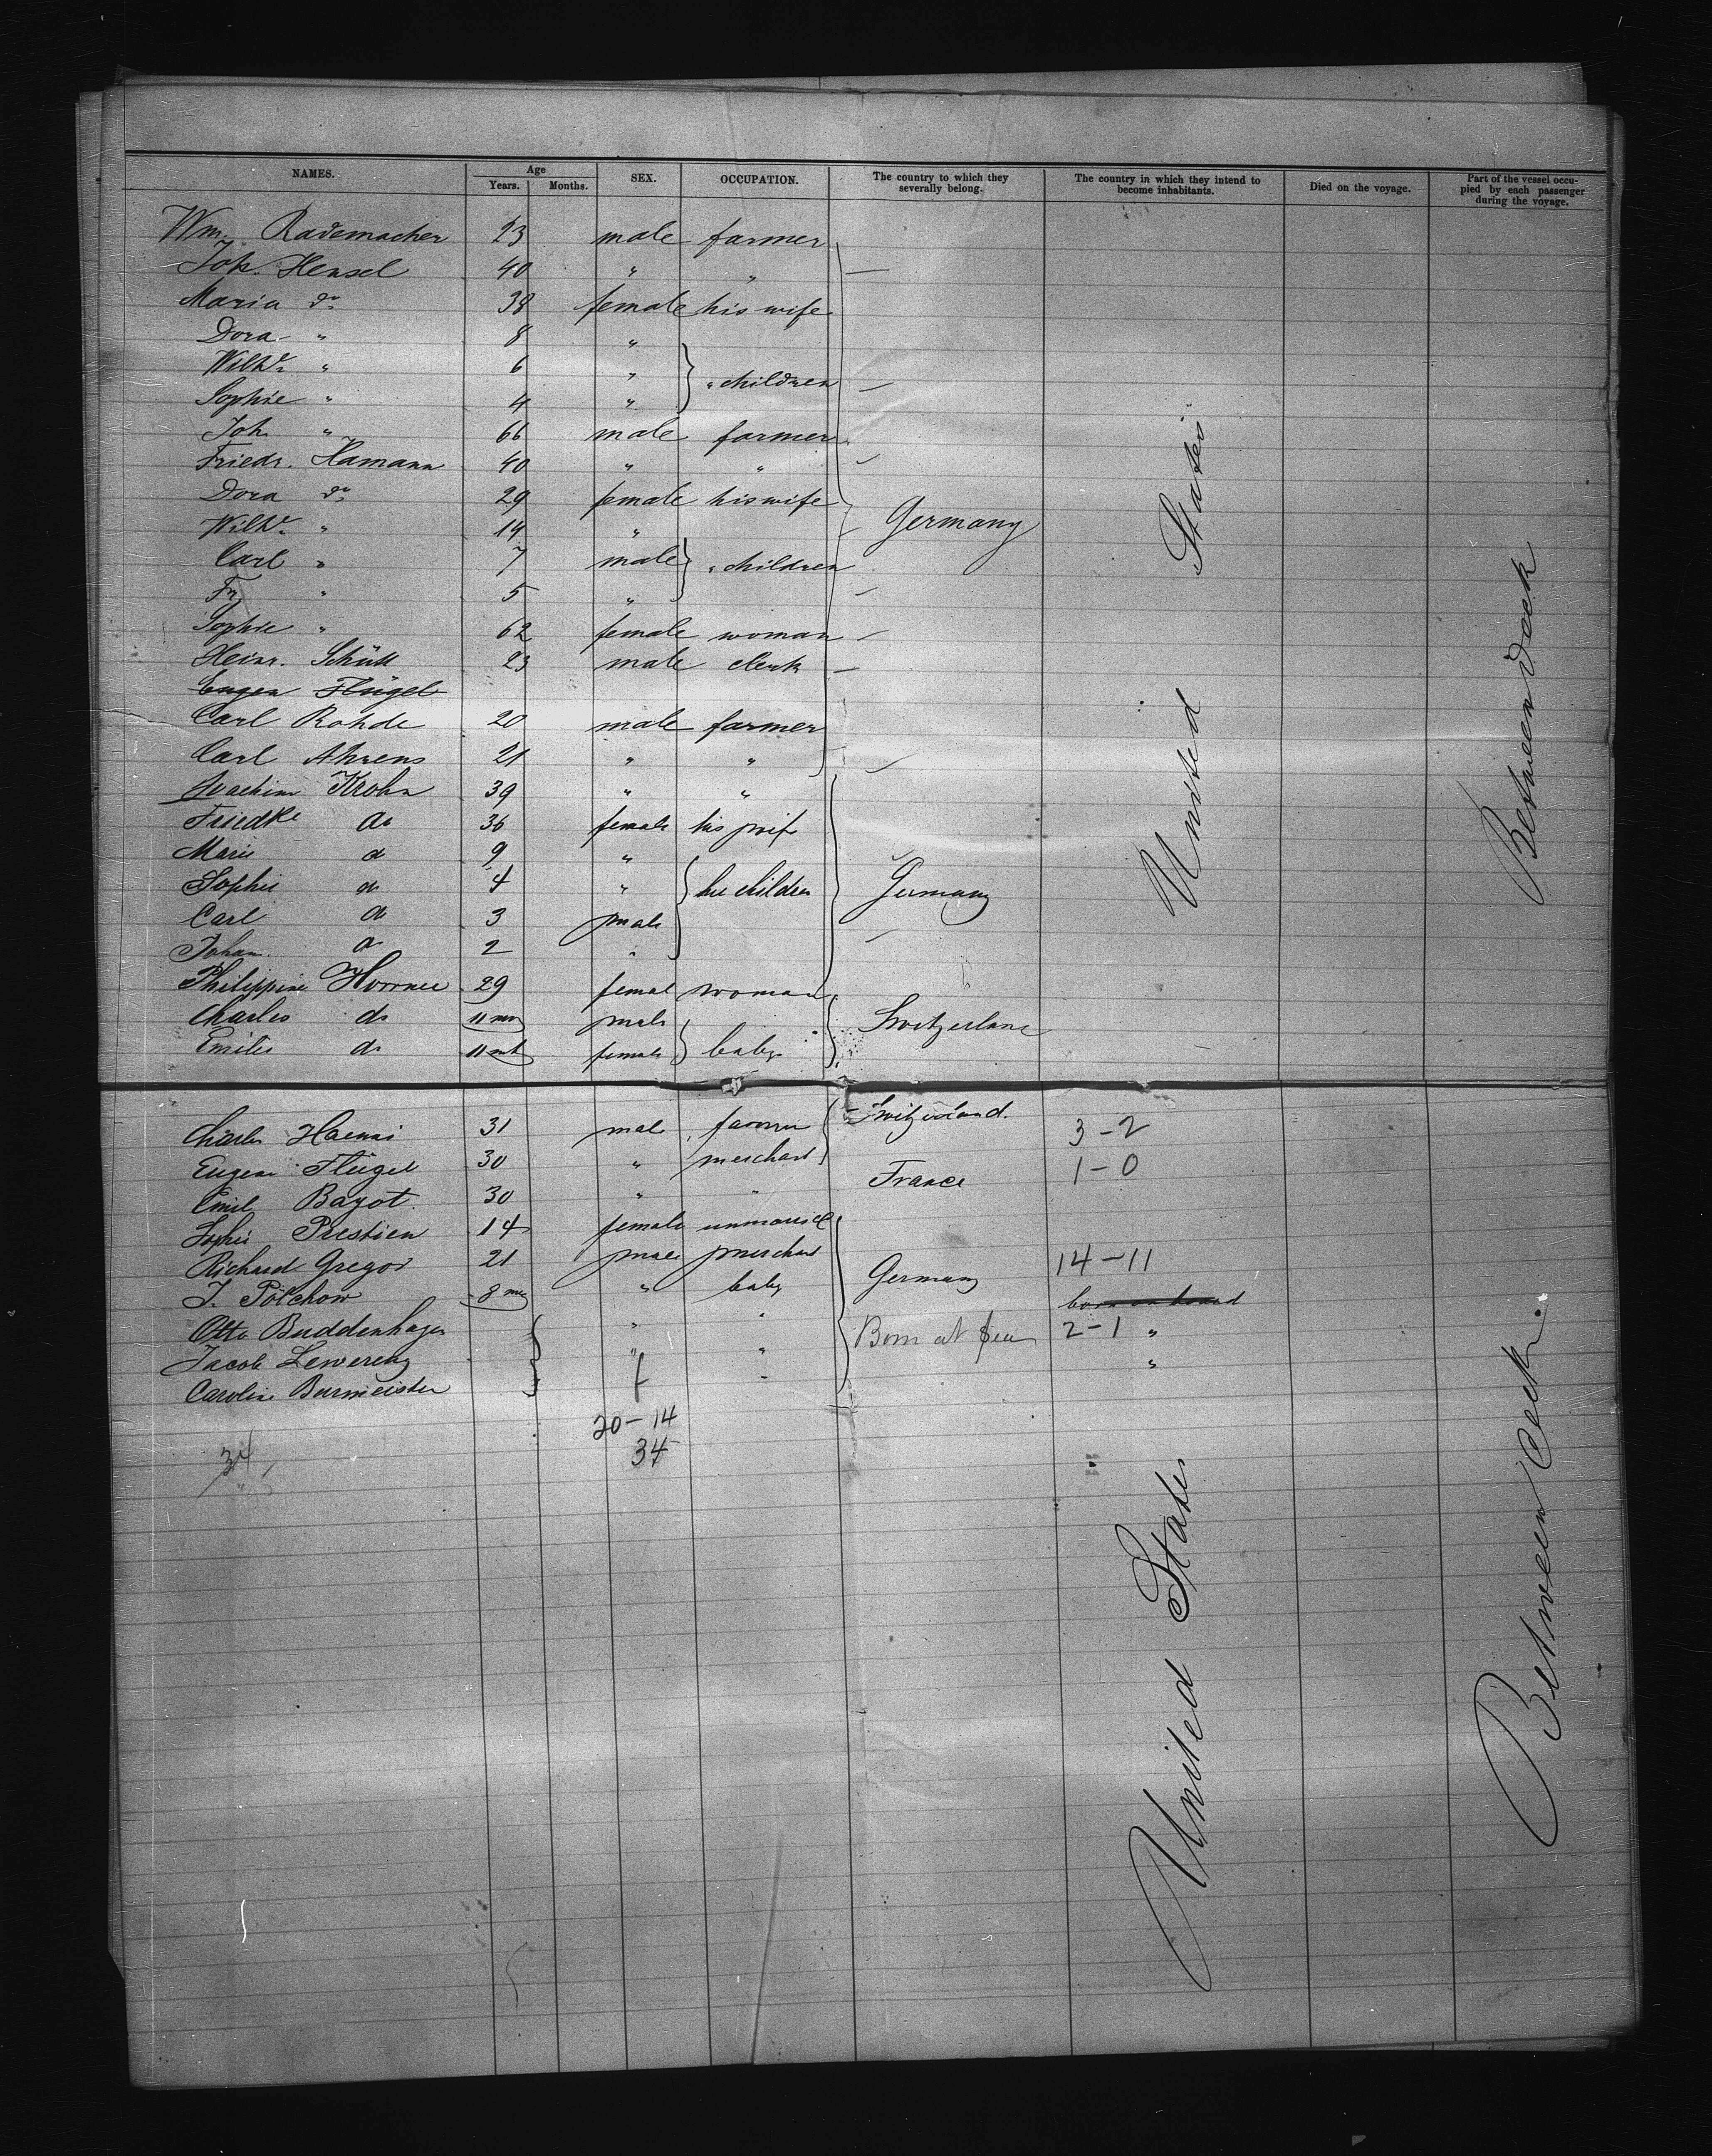 NAMES. Age SEX. OCCUPATION. The country to which they severally belong. The country in which they intend to become inhabitants. Died on the voyage. Part of the vessel occupied by each passenger during the voyage.
Years. Months.
Wm. Rademacher 23 male farmer
Joh. Hensel 40 " "
Maria do 38 female his wife
Dora " 8 "
Wilhe " 6 " " children
Sophie " 4 "
Joh. " 66 male farmer
Friedr. Hamann 40 " "
Dora do 29 female his wife
Wilhe " 14 " Germany
Carl " 7 male " children
Fr. " 5 "
Sophie " 62 female woman
Heinr. Schütt 23 male clerk
Eugen Flügel
Carl Rohde 20 male farmer
Carl Ahrens 21 " "
Joachim Krohn 39 " "
Friedke do 36 female his wife
Marie do 9 "
Sophie do 4 " her children Germany
Carl do 3 male
Johan do 2 "
Philippine 29 female woman
Charles do 11 mo male Switzerland
Emilie do 11 mt female baby
United States
Between Deck
Charles Haenni 31 male farmer Switzerland. 3-2
Eugene Flügel 30 " merchant 1-0
Emil Bayot. 30 " " France
Sophie Prestien 14 female unmarried
Richard Gregor 21 male merchant 14-11
J. Pölchow 8 mo " baby Germany
born on board
Otto Buddenhagen " " Born at Sea 2-1 "
Jacob Lewerenz " " "
Caroline Burmeister f "
20-14
34 34
United States
Between Deck.